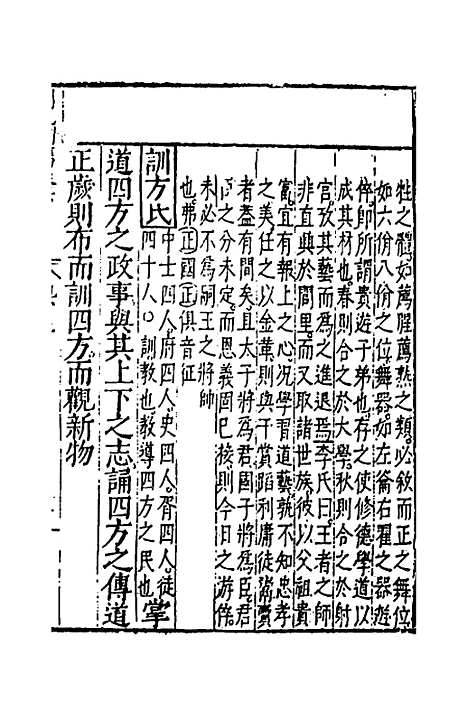 牲之體如薦腥薦熟之類必敘而正之舞位
如六佾八佾之位舞器如左籥右翟之器遊
倅師所謂貴遊子弟也存之使脩德學道以
成其材也春則合之於大學秋則合之於射
官攷其藝而為之進退焉李氏曰王者之師
非直興於閭里而又取諸世族彼以父祖貴
富宜有報上之心况學習道藝孰不知忠孝
之美任之以金革則與干賞蹈利庸徒鬻賣
者蓋有間矣且太子將為君國子將為臣君
臣之分未定而恩義固已接則今日之游倅
未必不為嗣王之將帥
也弗正國正俱音征
訓方氏中士四人府四人史四人胥四人徒
四十人○訓教也教導四方之民也掌
道四方之政事與其上下之志誦四方之傳道
正歲則布而訓四方而觀新物